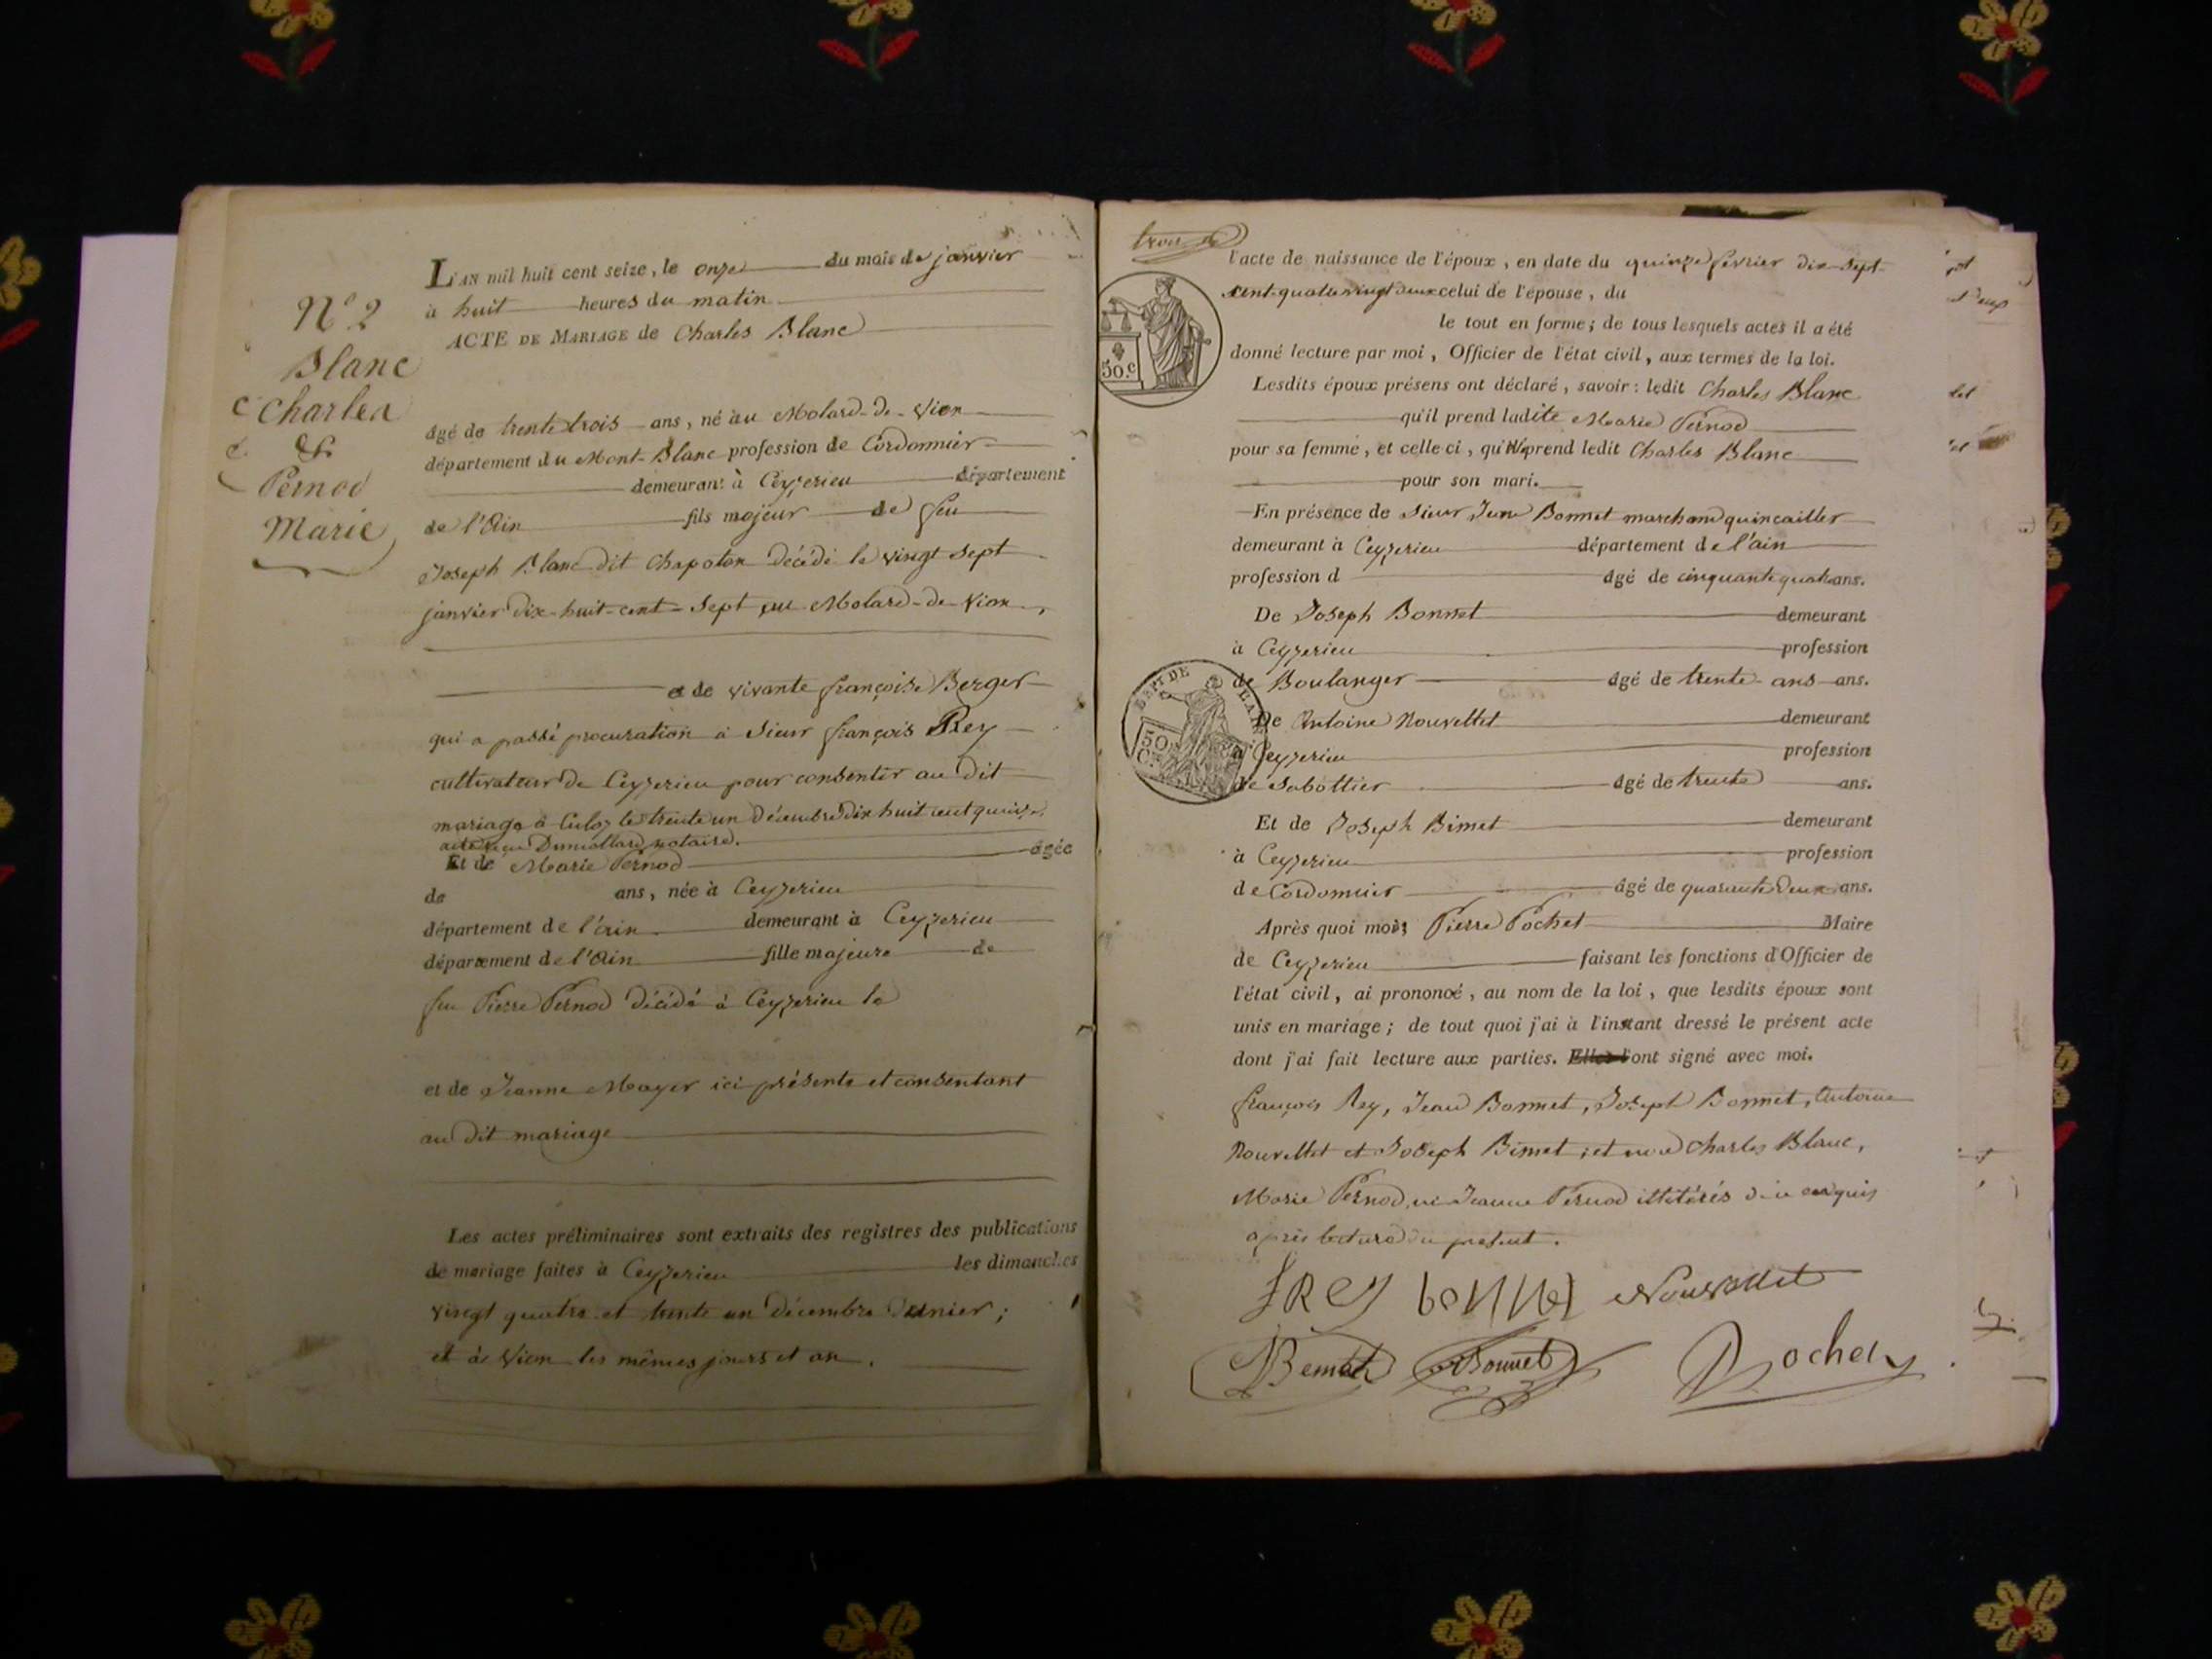 N° 2
Blanc
Charles
&
Pernod
Marie
L'AN mil huit cent seize, le onze du mois de janvier
à huit heures du matin
ACTE DE MARIAGE de Charles Blanc
âgé de trente trois ans, né au Molard-de-Vion
département du Mont-Blanc profession de Cordonnier
demeurant à Ceyzerieu département
de l'Ain fils majeur de feu
Joseph Blanc dit Chapoton décédé le vingt sept
janvier dix-huit-cent-sept au Molard-de-Vion,
et de vivante françoise Berger
qui a passé procuration à Sieur françois Rey
cultivateur de Ceyzerieu pour consentir au dit
mariage à Culoz le trente un décembre dix huit cent quinze,
acte reçu notaire.
Et de Marie Pernod âgée
de ans, née à Ceyzerieu
département de l'ain demeurant à Ceyzerieu
département de l'Ain fille majeure de
feu Pierre Pernod décédé à Ceyzerieu le
et de Jeanne Mayer ici présente et consentant
au dit mariage
Les actes préliminaires sont extraits des registres des publications
de mariage faites à Ceyzerieu les dimanches
vingt quatre et trente un décembre dernier ;
et à Vion les mêmes jours et an.
trois
l'acte de naissance de l'époux, en date du quinze février dix-sept-
cent-quatre vingt deux celui de l'épouse, du
le tout en forme ; de tous lesquels actes il a été
donné lecture par moi, Officier de l'état civil, aux termes de la loi.
50.c
Lesdits époux présens ont déclaré, savoir : ledit Charles Blanc
qu'il prend ladite Marie Pernod
pour sa femme, et celle ci, qu'elle prend ledit Charles Blanc
pour son mari.
En présence de Sieur Jean Bonnet marchand quincailler
demeurant à Ceyzerieu département de l'ain
profession d âgé de cinquante quatre ans.
De Joseph Bonnet demeurant
à Ceyzerieu profession
de Boulanger âgé de trente ans ans.
De Antoine Nouvellet demeurant
à Ceyzerieu profession
de Sabottier âgé de trente ans.
50 C.
Et de Joseph Bimet demeurant
à Ceyzerieu profession
de Cordonnier âgé de quarante deux ans.
Après quoi moi, Pierre Pochet Maire
de Ceyzerieu faisant les fonctions d'Officier de
l'état civil, ai prononcé, au nom de la loi, que lesdits époux sont
unis en mariage ; de tout quoi j'ai à l'instant dressé le présent acte
dont j'ai fait lecture aux parties. ont signé avec moi.
françois Rey, Jean Bonnet, Joseph Bonnet, Antoine
Nouvellet et Joseph Bimet ; et non Charles Blanc,
Marie Pernod, ni Jeanne Pernod illétérés de ce enquis
après lecture du présent.
f Rey bonnet Nouvellet
Bemet Bonnet Pochet